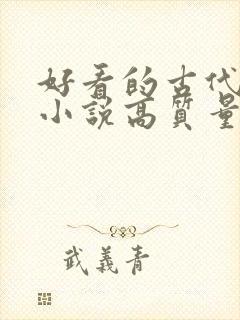 好看的古代
小説高質量
武義青